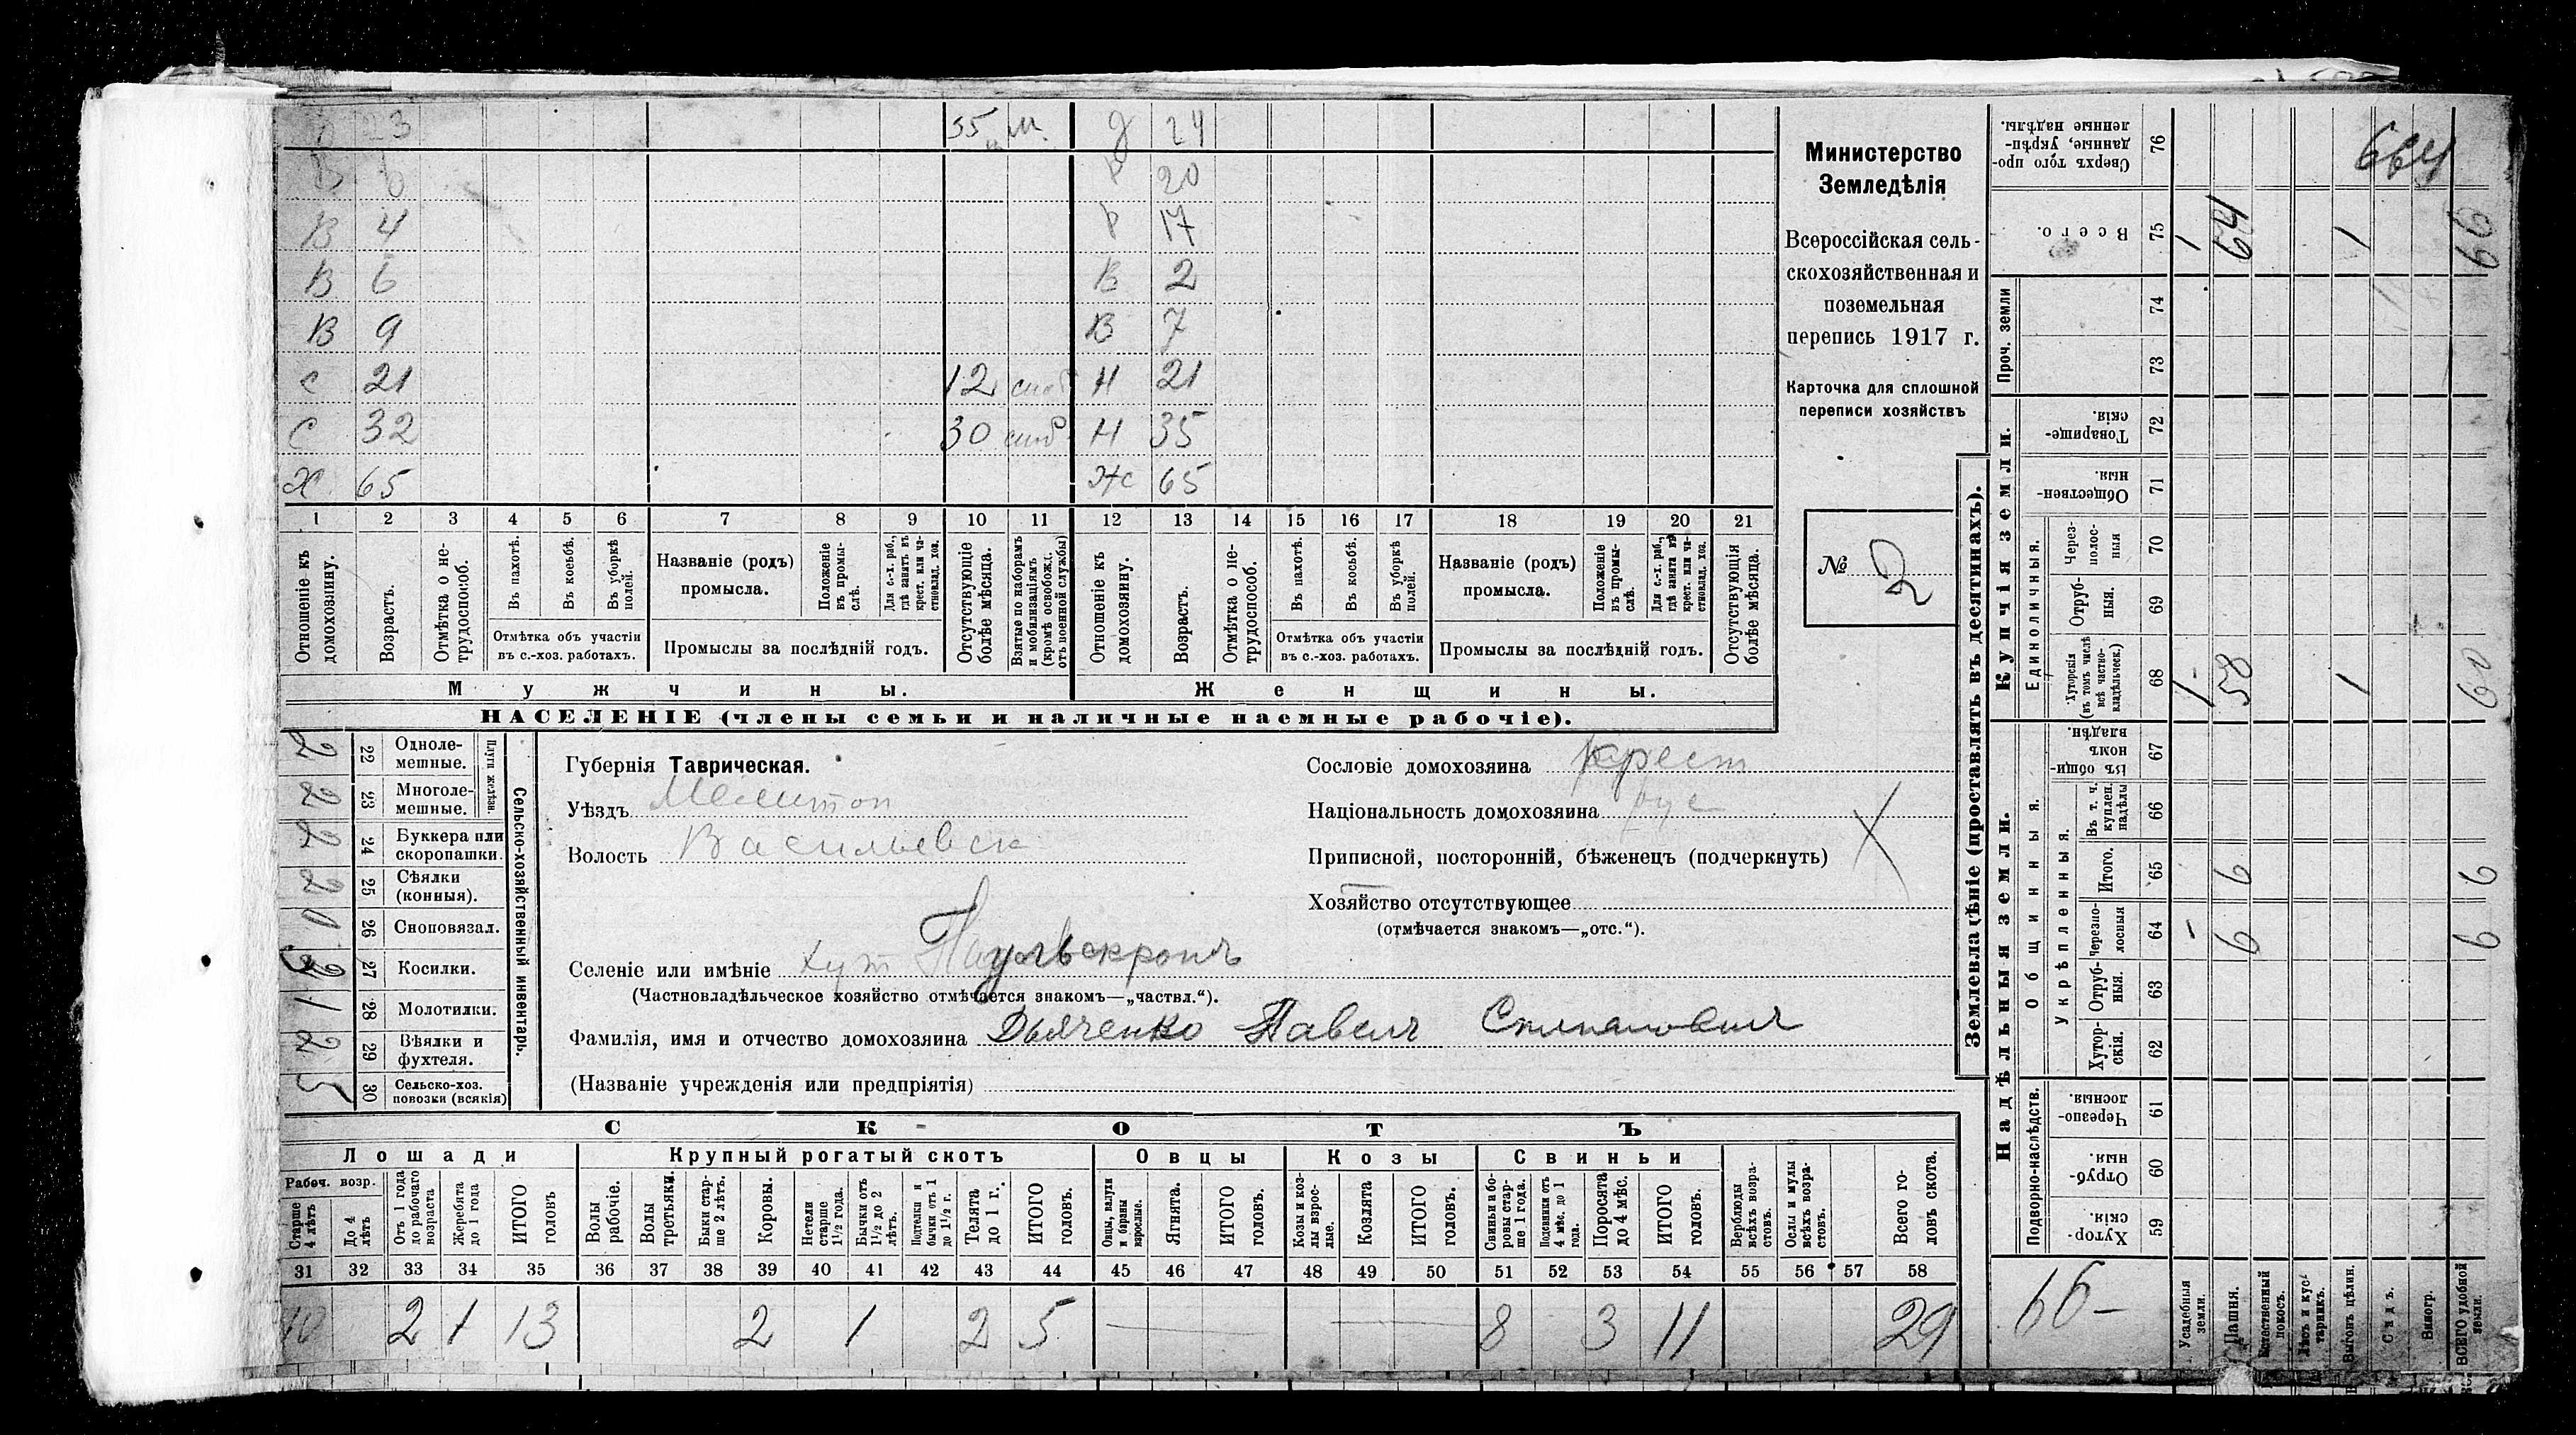 В 23 55 м. д 24
В 6 Р 20
В 4 Р 17
В 6 В 2
В 9 В 7
С 21 12 Н 21
С 32 30 Н 35
Х 65 Ж 65
1 2 3 4 5 6 7 8 9 10 11 12 13 14 15 16 17 18 19 20 21
Отношеніе къ домохозяину.
Возрастъ.
Отмѣтка о не-трудоспособ.
Въ пахотѣ.
Въ косьбѣ.
Въ уборкѣ полей.
Отмѣтка объ участіи въ с.-хоз. работахъ.
Названіе (родъ) промысла.
Положеніе въ промы-слѣ.
Для с.-х. раб., гдѣ занятъ въ крест. или ча-стновлад. хоз.
Промыслы за послѣдній годъ.
Отсутствующіе болѣе мѣсяца.
Взятые по наборамъ и мобилизаціямъ (кромѣ освобожд. отъ военной службы)
Отношеніе къ домохозяину.
Возрастъ.
Отмѣтка о не-трудоспособ.
Въ пахотѣ.
Въ косьбѣ.
Въ уборкѣ полей.
Отмѣтка объ участіи въ с.-хоз. работахъ.
Названіе (родъ) промысла.
Положеніе въ промы-слѣ.
Для с.-х. раб., гдѣ занята въ крест. или ча-стновлад. хоз.
Промыслы за послѣдній годъ.
Отсутствующія болѣе мѣсяца.
Мужчины. Женщины.
НАСЕЛЕНІЕ (члены семьи и наличные наемные рабочіе).
Министерство
Земледѣлія
Всероссійская сель-
скохозяйственная и
поземельная
перепись 1917 г.
Карточка для сплошной
переписи хозяйствъ
№ 2
Сельско-хозяйственный инвентарь.
Плуги желѣзн.
2 22 Одноле-мешные.
2 23 Многоле-мешные.
2 24 Буккера или скоропашки.
2 25 Сѣялки (конныя).
26 Сноповязал.
27 Косилки.
1 28 Молотилки.
2 29 Вѣялки и фухтеля.
5 30 Сельско-хоз. повозки (всякія)
Губернія Таврическая.
Уѣздъ Мелитоп
Волость Васильевск
Сословіе домохозяина крест
Національность домохозяина рус
Приписной, посторонній, бѣженецъ (подчеркнуть)
Хозяйство отсутствующее
(отмѣчается знакомъ—„отс.“).
Селеніе или имѣніе хут Паульскронъ
(Частновладѣльческое хозяйство отмѣчается знакомъ—„частвл.“).
Фамилія, имя и отчество домохозяина Дьяченко Павелъ Степановичъ
(Названіе учрежденія или предпріятія)
СКОТЪ
Лошади Крупный рогатый скотъ Овцы Козы Свиньи
Рабоч. возр.
Старше 4 лѣтъ
До 4 лѣтъ
Отъ 1 года до рабочаго возраста
Жеребята до 1 года
ИТОГО головъ
Волы рабочіе.
Волы третьяки.
Быки стар-ше 2 лѣтъ.
Коровы.
Нетели старше 1½ года.
Бычки отъ 1½ до 2 лѣтъ.
Подтелки и бычки отъ 1 до 1½ г.
Телята до 1 г.
ИТОГО головъ.
Овцы, валухи и бараны взрослые.
Ягнята.
ИТОГО головъ.
Козы и коз-лы взрос-лые.
Козлята
ИТОГО головъ.
Свиньи и бо-ровы стар-ше 1 года.
Подсвинки отъ 4 мѣс. до 1 года.
Поросята до 4 мѣс.
ИТОГО головъ.
Верблюды всѣхъ возра-стовъ.
Ослы и мулы всѣхъ возра-стовъ.
Всего го-ловъ скота.
31 32 33 34 35 36 37 38 39 40 41 42 43 44 45 46 47 48 49 50 51 52 53 54 55 56 57 58
10 2 1 13 2 1 2 5 8 3 11 29
Землевладѣніе (проставлять въ десятинахъ).
Купчія земли.
Надѣльныя земли.
Сверхъ того про-данные, укрѣп-ленные надѣлы. 76
Всего. 75 1 64 1 66
Проч. земли 74 73
Товарище-скія. 72
Обществен-ныя 71
Единоличныя.
Через-полос-ныя 70
Отруб-ныя. 69
Хуторскія (въ томъ числѣ всѣ частно-владѣльческ.) 68 1 58 1 60
Общинныя.
Въ общин-номъ владѣн. 67
Укрѣпленныя.
Въ т. ч. куплен. надѣлы 66
Итого. 65 6 6
Черезпо-лосныя 64 6 6
Отруб-ныя. 63
Хутор-скія. 62
Подворно-наслѣдств.
Черезпо-лосныя. 61
Отруб-ныя. 60
Хутор-скія. 59
66
Усадебныя земли.
Пашня.
Естественный покосъ.
Лѣсъ и кус-тарникъ.
Выгонъ цѣлин.
Садъ.
Виногр.
ВСЕГО удобной земли.